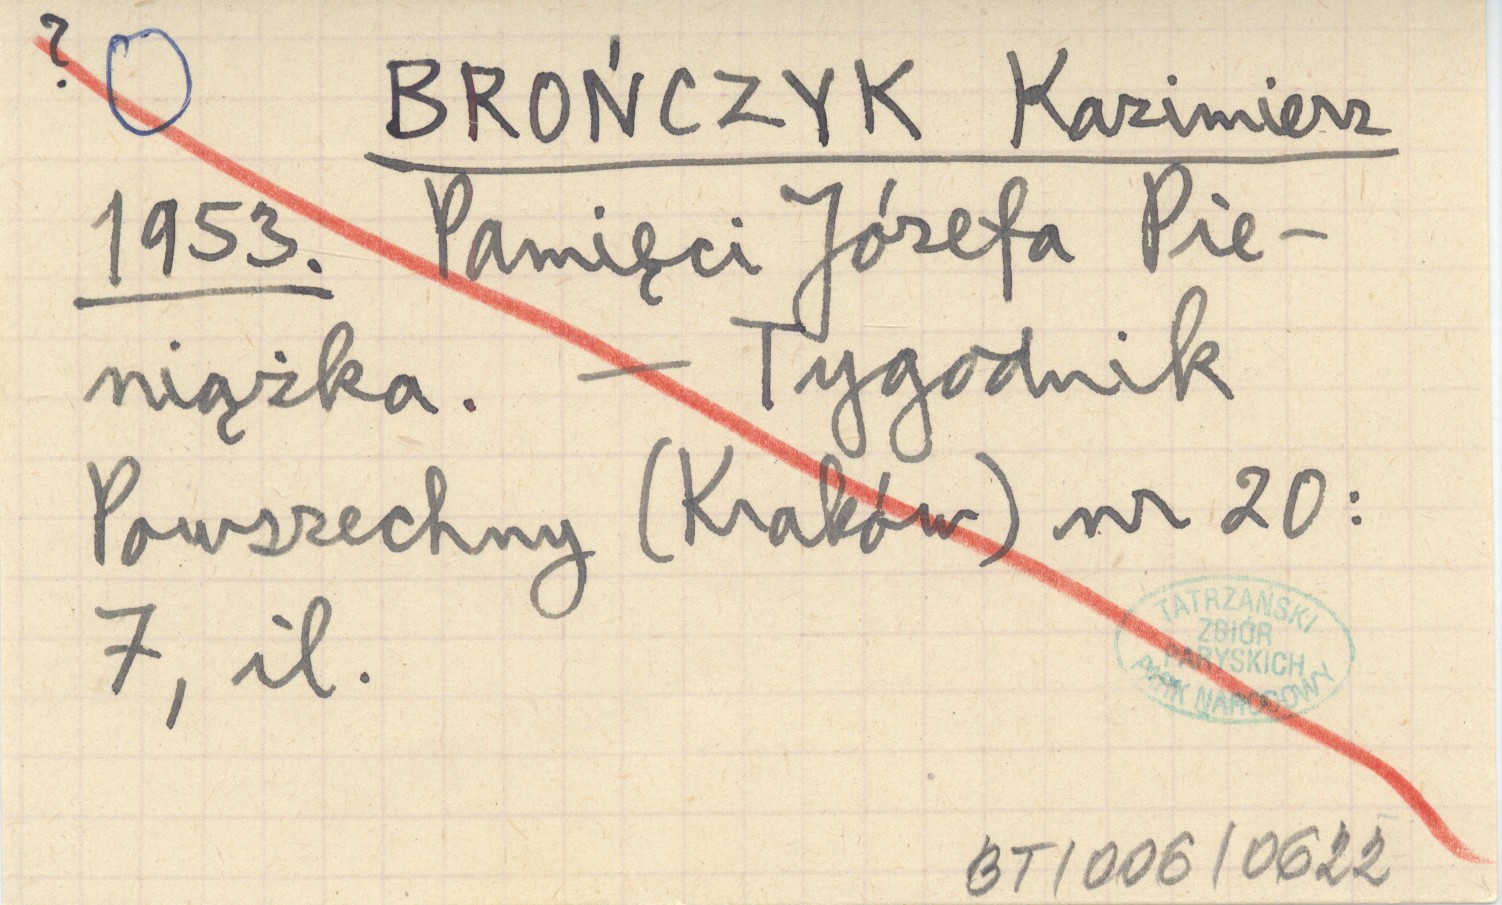 ?
BROŃCZYK Kazimierz
1953. Pamięci Józefa Pie-
niążka. — Tygodnik
Powszechny (Kraków) nr 20:
7, il.
TATRZAŃSKI
ZBIÓR
PARYSKICH
PARK NARODOWY
BT/006/0622